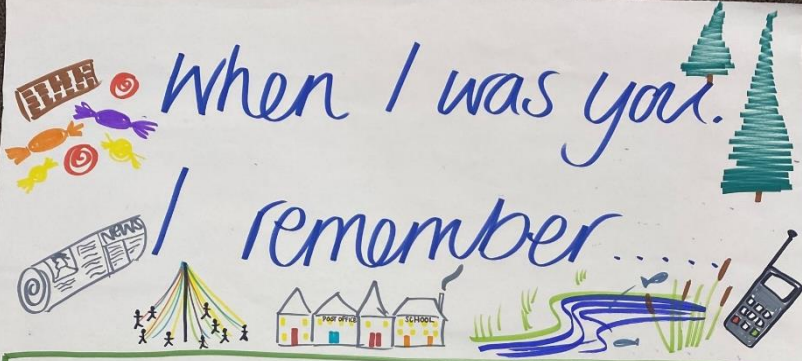 When I was you.
I remember.....
NEWS
POST OFFICE
SCHOOL